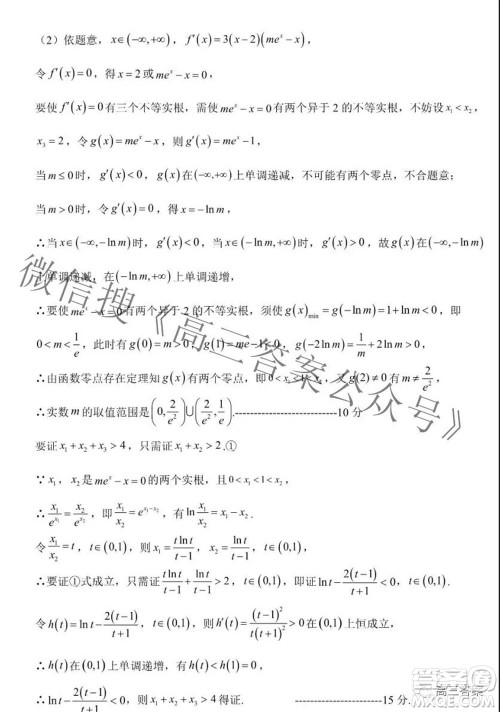 （2）依题意，x∈(-∞,+∞)，f′(x)=3(x-2)(me^x-x)，
令 f′(x)=0，得 x=2 或 me^x-x=0，
要使 f′(x)=0 有三个不等实根，需使 me^x-x=0 有两个异于 2 的不等实根，不妨设 x₁<x₂，
x₃=2，令 g(x)=me^x-x，则 g′(x)=me^x-1，
当 m≤0 时，g′(x)<0，g(x) 在 (-∞,+∞) 上单调递减，不可能有两个零点，不合题意；
当 m>0 时，令 g′(x)=0，得 x=-ln m，
∴当 x∈(-∞,-ln m) 时，g′(x)<0，当 x∈(-ln m,+∞) 时，g′(x)>0，故 g(x) 在 (-∞,-ln m)
上单调递减，在 (-ln m,+∞) 上单调递增，
∴要使 me^x-x=0 有两个异于 2 的不等实根，须使 g(x)min=g(-ln m)=1+ln m<0，即
0<m<1/e，此时有 g(0)=m>0，g(1)=me-1<0，g(-2ln m)=1/m+2ln m>0，
∴由函数零点存在定理知 g(x) 有两个零点，即 0<x₁<1<x₂，又 g(2)≠0 有 m≠2/e²，
∴实数 m 的取值范围是 (0,2/e²)∪(2/e²,1/e).---------------------------10 分
要证 x₁+x₂+x₃>4，只需证 x₁+x₂>2.①
∵x₁，x₂ 是 me^x-x=0 的两个实根，且 0<x₁<1<x₂，
∴x₁/e^x₁=x₂/e^x₂，即 x₁/x₂=e^(x₁-x₂)，有 ln x₁/x₂=x₁-x₂.
令 x₁/x₂=t，t∈(0,1)，则 x₁=tln t/(t-1)，x₂=ln t/(t-1)，
∴要证①式成立，只需证 tln t/(t-1)+ln t/(t-1)>2，t∈(0,1)，即证 ln t-2(t-1)/(t+1)<0，t∈(0,1).
令 h(t)=ln t-2(t-1)/(t+1)，t∈(0,1)，则 h′(t)=(t-1)²/t(t+1)²>0 在 (0,1) 上恒成立，
∴h(t) 在 (0,1) 上单调递增，有 h(t)<h(1)=0，
∴ln t-2(t-1)/(t+1)<0，t∈(0,1) 得证.------------------------15 分.
微信搜《高三答案公众号》
高三答案